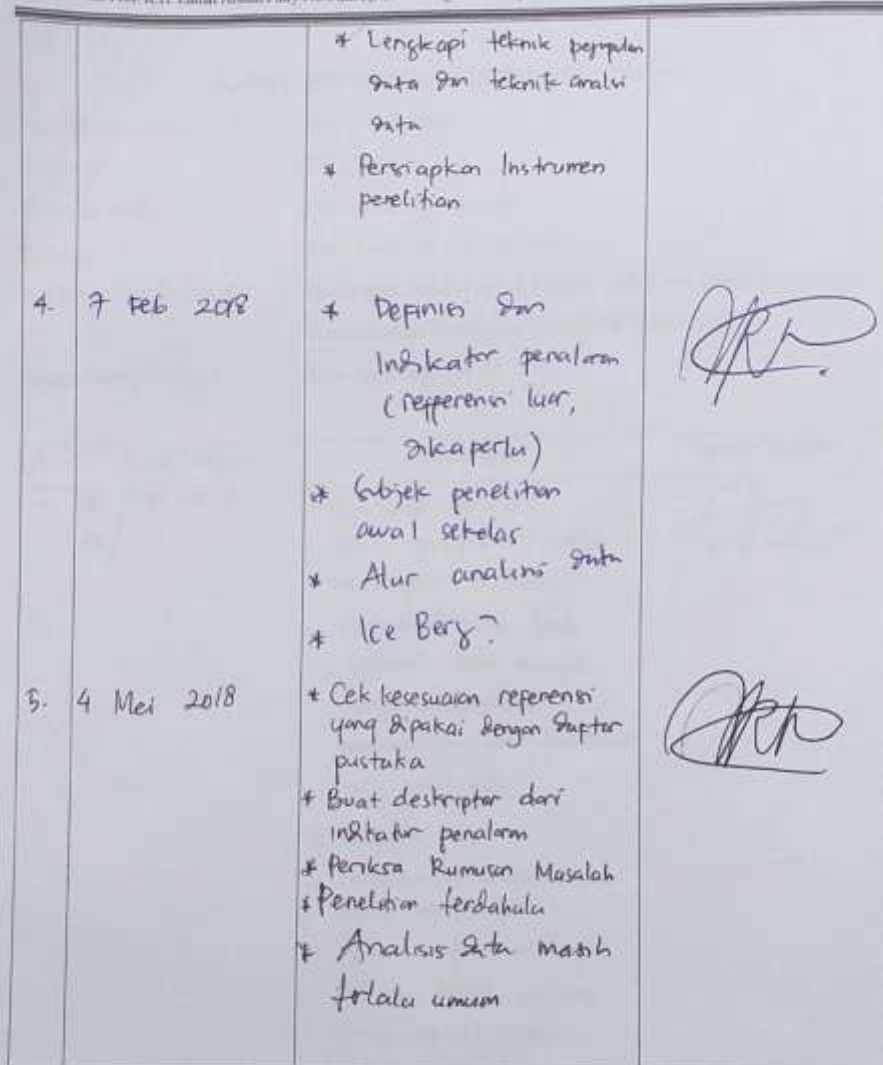 * Lengkapi teknik pengumpulan
data dan teknik analisi
data
* Persiapkan Instrumen
penelitian
4. 7 Feb 2018 * Definisi dan
Indikator penalaran
(refferensi luar,
jika perlu)
* Subjek penelitian
awal sekelas
* Alur analisis data
* Ice Berg?
5. 4 Mei 2018 * Cek kesesuaian referensi
yang dipakai dengan daftar
pustaka
* Buat deskriptor dari
indikator penalaran
* Periksa Rumusan Masalah
* Penelitian terdahulu
* Analisis data masih
terlalu umum